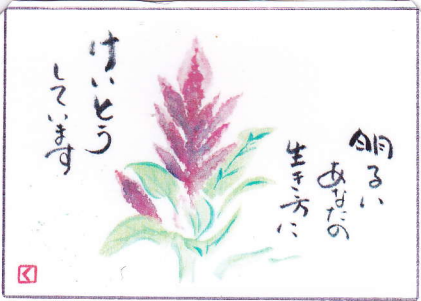 明るい
あなたの
生き方に
けいとう
しています
く